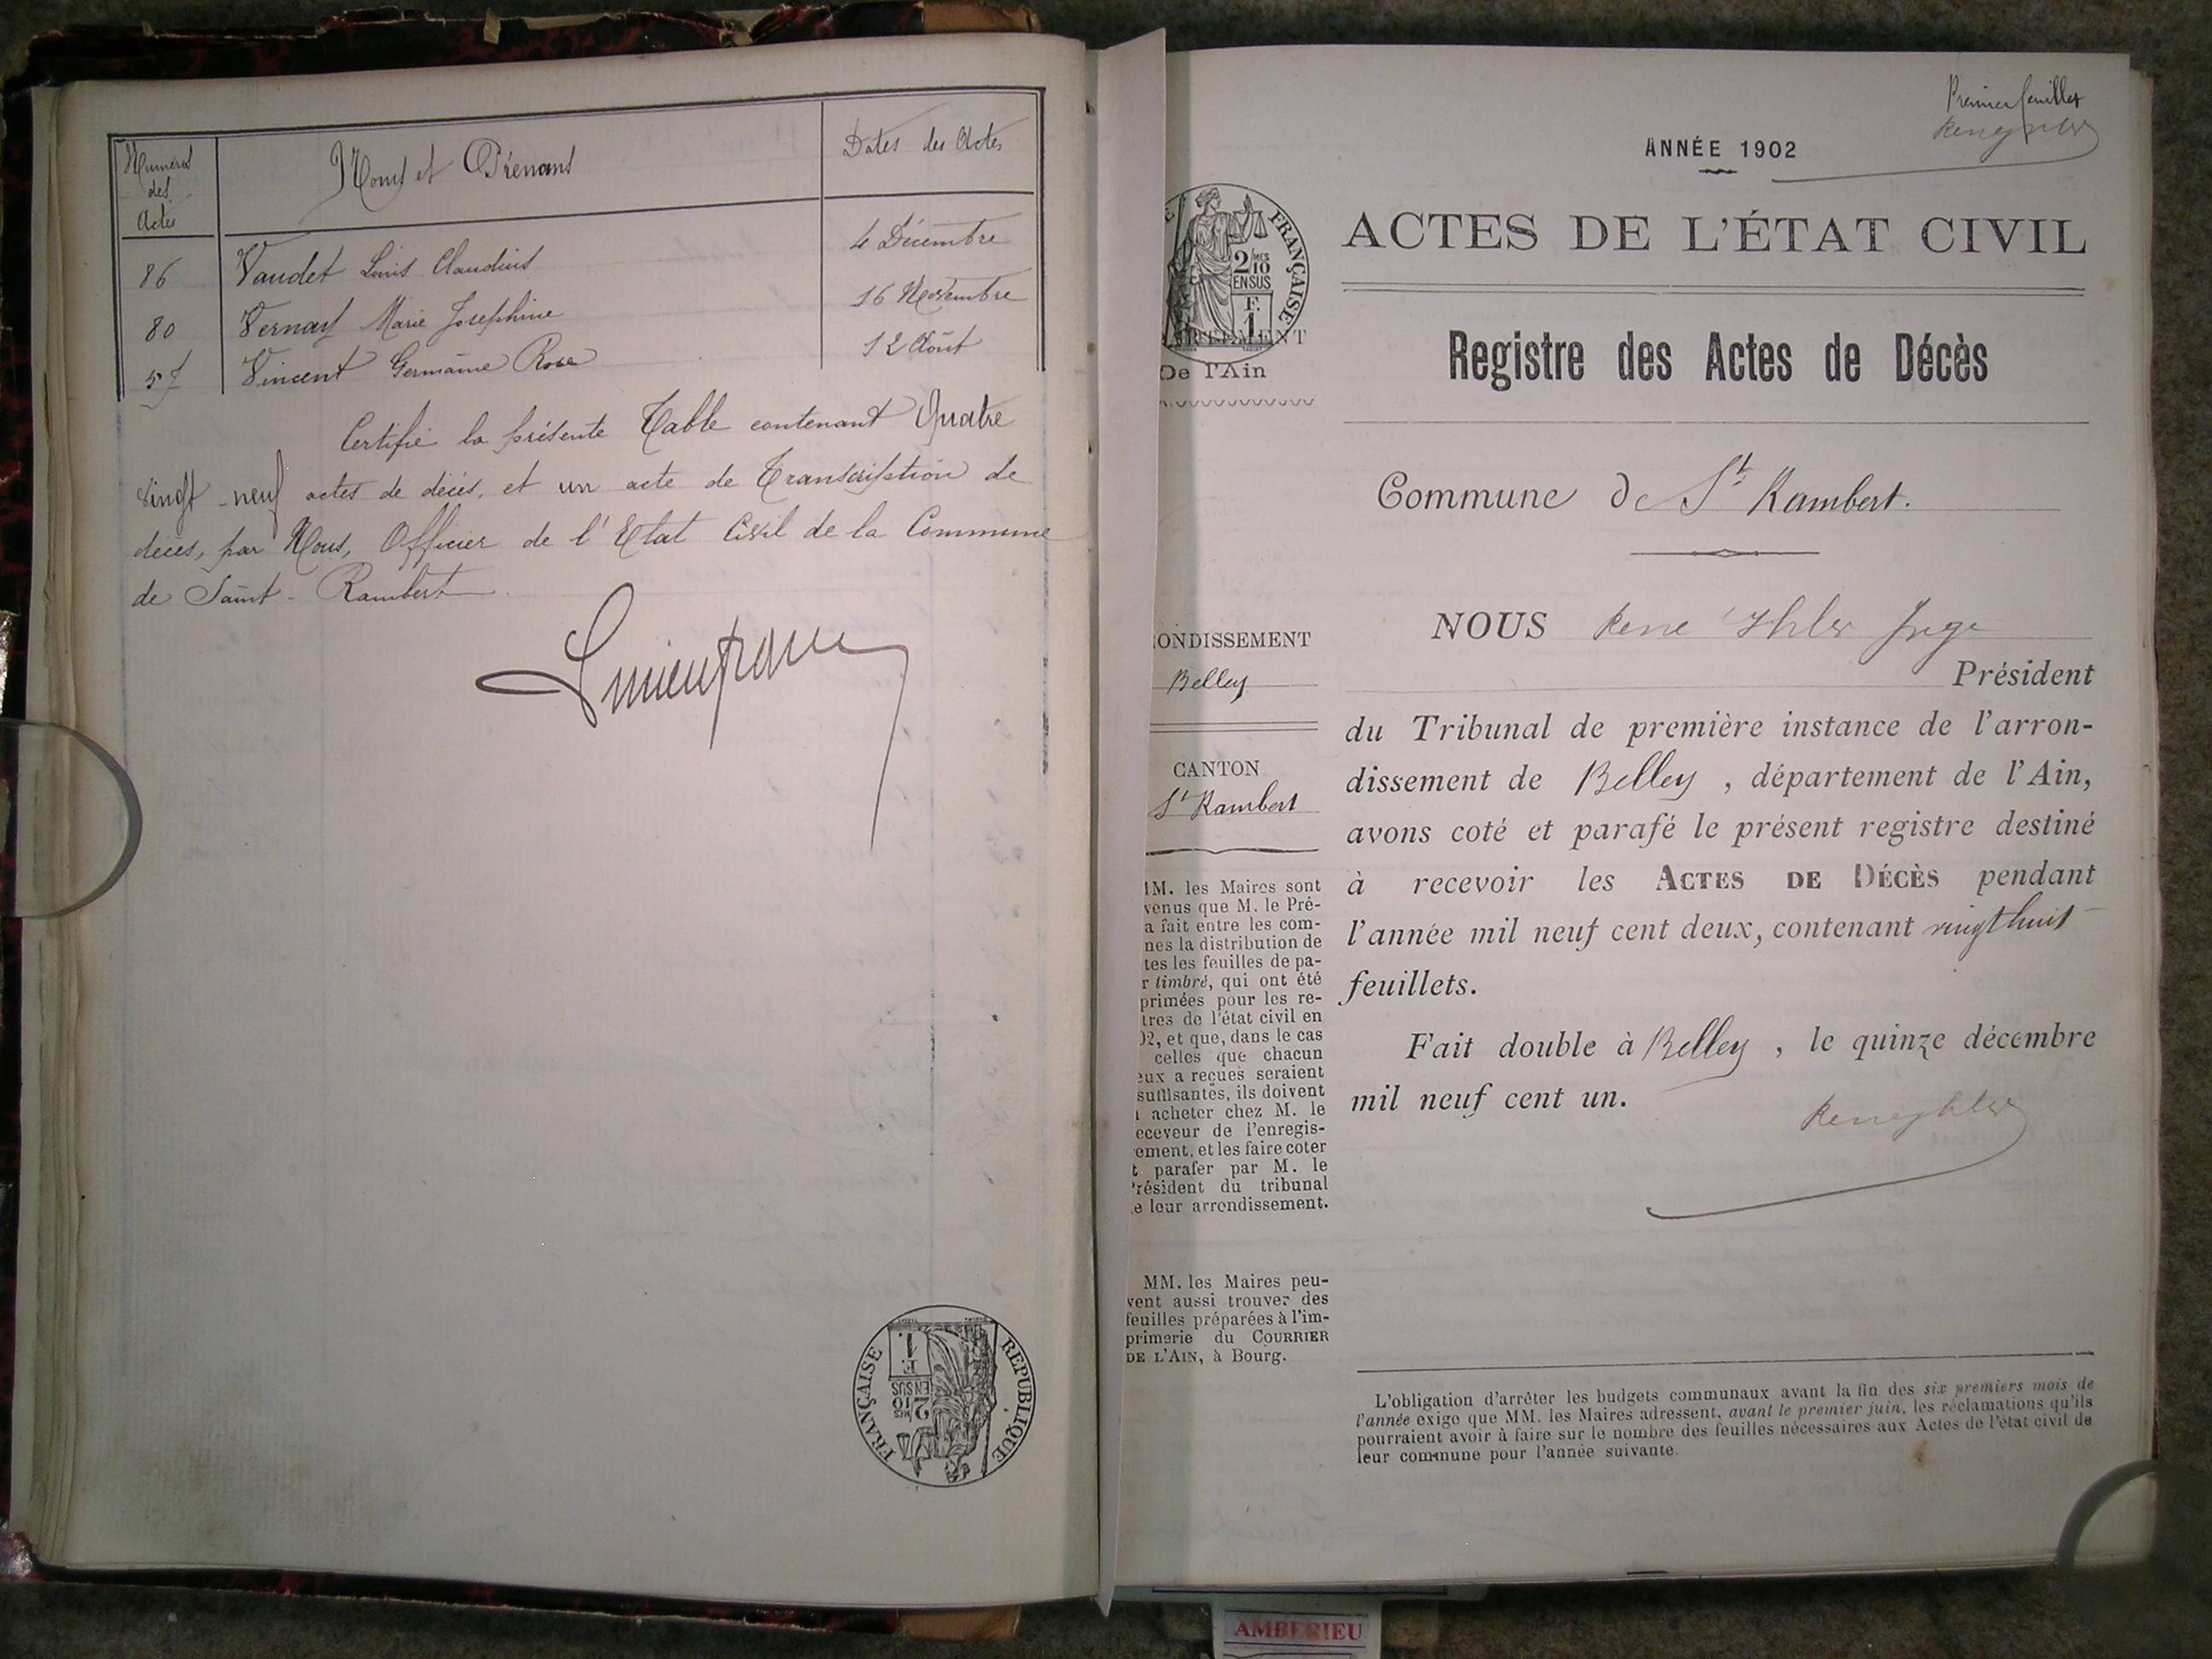 Numéros
des
Actes
Noms et Prénoms
Dates des Actes
86 Vaudet Louis Claudius 4 Décembre
80 Vernay Marie Josephine 16 Novembre
57 Vincent Germaine Rose 12 Août
Certifié la présente Table contenant Quatre
vingt-neuf actes de décès, et un acte de Transcription de
décès, par Nous, Officier de l'Etat Civil de la Commune
de Saint-Rambert.
RÉPUBLIQUE FRANÇAISE
2/10 MES
EN SUS
F.
1
Premier feuillet
ANNÉE 1902
FRANÇAISE
2/10 MES
EN SUS
F.
1
De l'Ain
ONDISSEMENT
Belley
CANTON
St Rambert
M. les Maires sont
venus que M. le Pré-
a fait entre les com-
nes la distribution de
tes les feuilles de pa-
r timbré, qui ont été
primées pour les re-
tres de l'état civil en
02, et que, dans le cas
celles que chacun
eux a reçues seraient
suffisantes, ils doivent
acheter chez M. le
eceveur de l'enregis-
ement, et les faire coter
t parafer par M. le
résident du tribunal
e leur arrondissement.
MM. les Maires peu-
vent aussi trouver des
feuilles préparées à l'im-
primerie du COURRIER
DE L'AIN, à Bourg.
ACTES DE L'ÉTAT CIVIL
Registre des Actes de Décès
Commune de St Rambert.
NOUS René Ihler Juge
Président
du Tribunal de première instance de l'arron-
dissement de Belley, département de l'Ain,
avons coté et parafé le présent registre destiné
à recevoir les ACTES DE DÉCÈS pendant
l'année mil neuf cent deux, contenant vingt huit
feuillets.
Fait double à Belley, le quinze décembre
mil neuf cent un.
L'obligation d'arrêter les budgets communaux avant la fin des six premiers mois de
l'année exige que MM. les Maires adressent, avant le premier juin, les réclamations qu'ils
pourraient avoir à faire sur le nombre des feuilles nécessaires aux Actes de l'état civil de
leur commune pour l'année suivante.
AMBERIEU